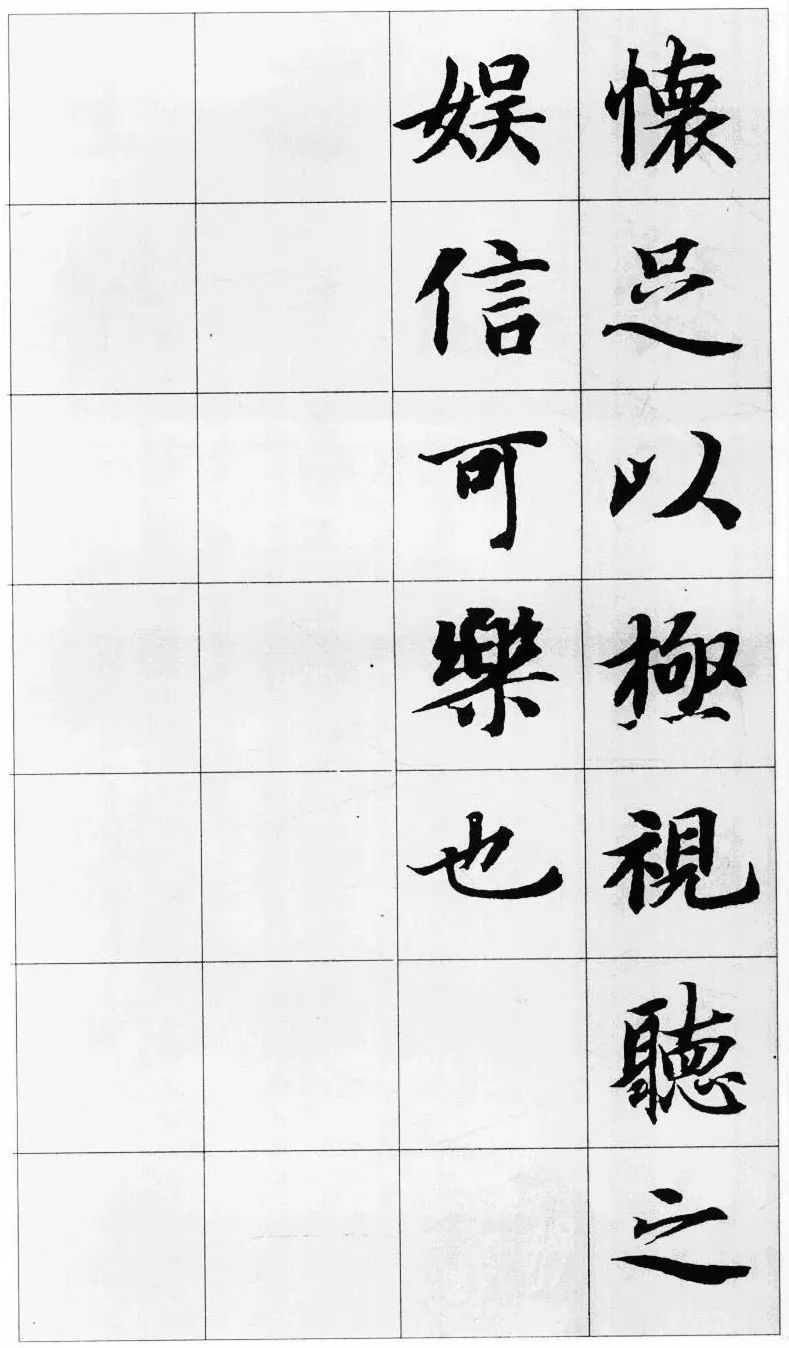 懐足以極視聽之
娯信可樂也